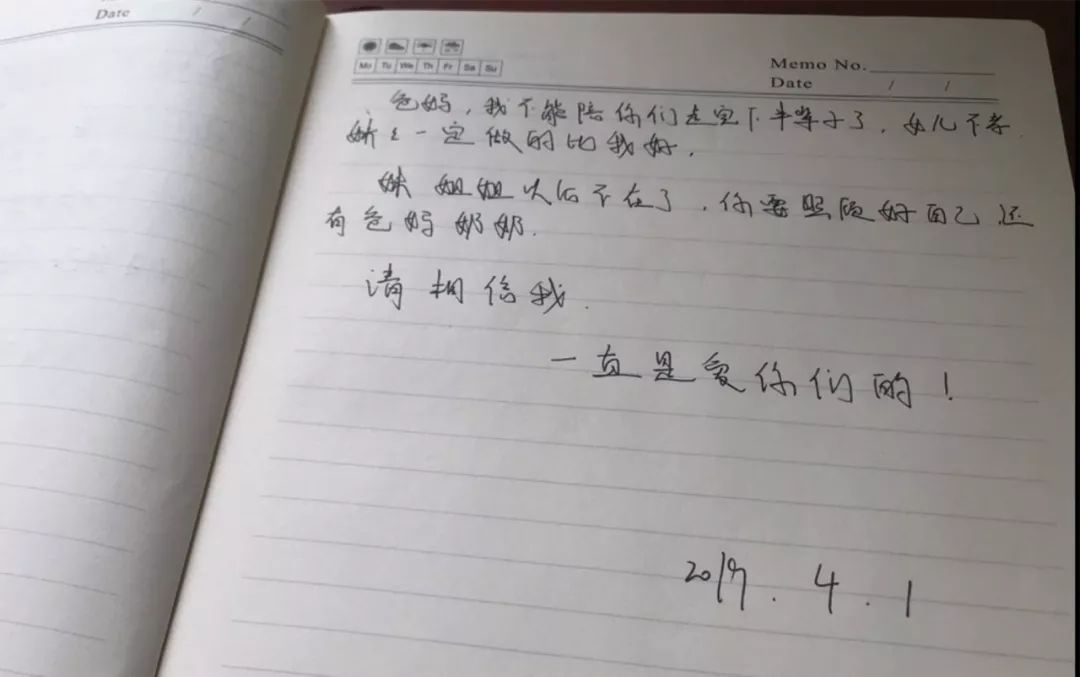 Date / /
Mo Tu We Th Fr Sa Su
Memo No.
Date / /
爸妈，我不能陪你们走完下半辈子了，女儿不孝
妹妹一定做的比我好．
妹 姐姐以后不在了，你要照顾好自己 还
有爸妈奶奶．
请相信我．
一直是爱你们的！
2019．4．1